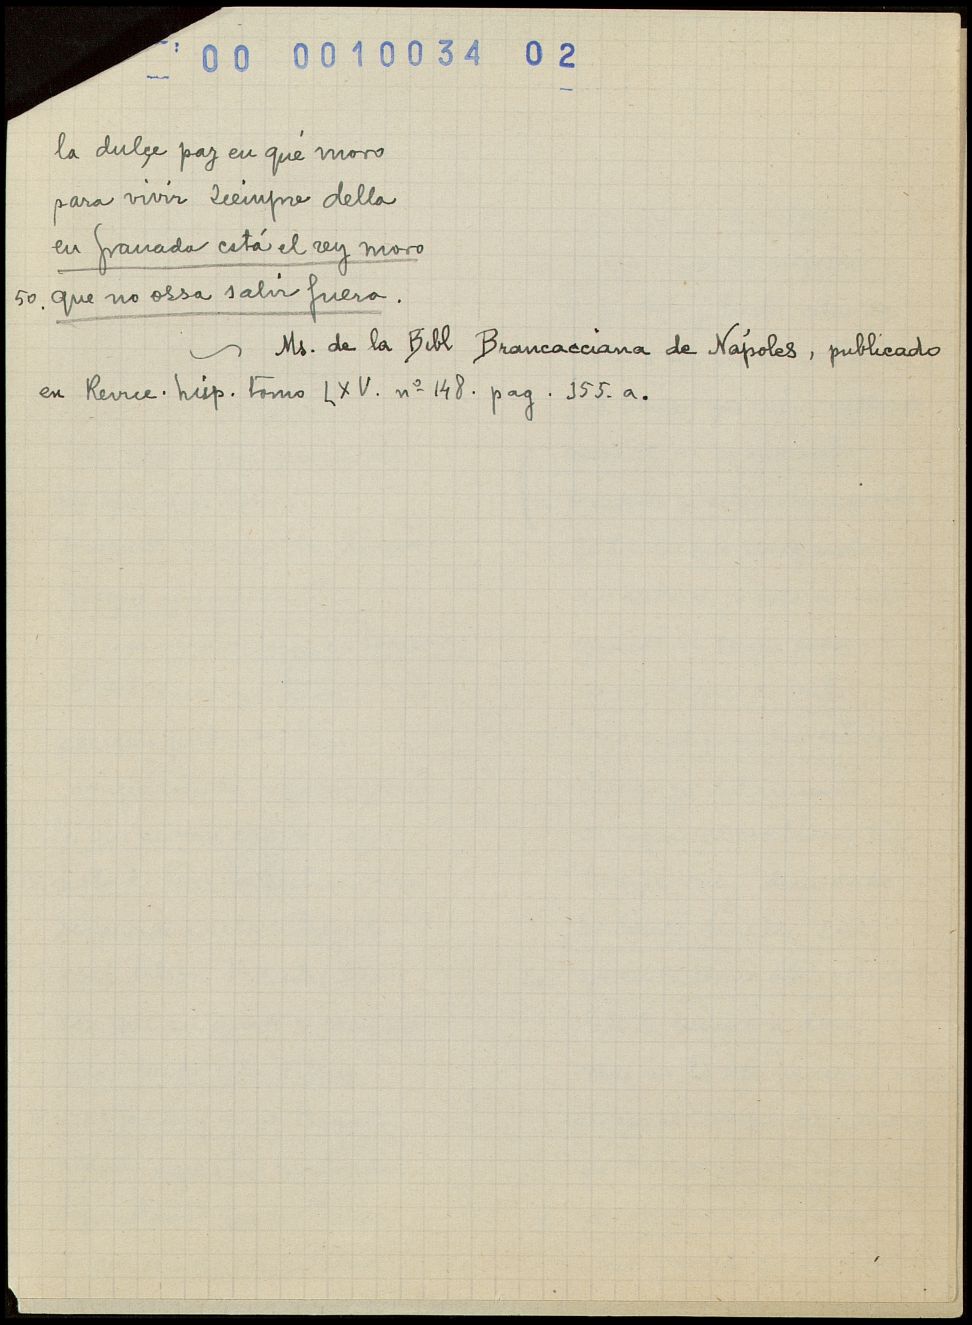 00 0010034 02
la dulçe paz en qué moro
para vivir siempre della
en Granada está el rey moro
50. que no ossa salir fuera.
Ms. de la Bibl Brancacciana de Nápoles, publicado
en Revue. hisp. tomo LXV. nº 148. pag. 355. a.